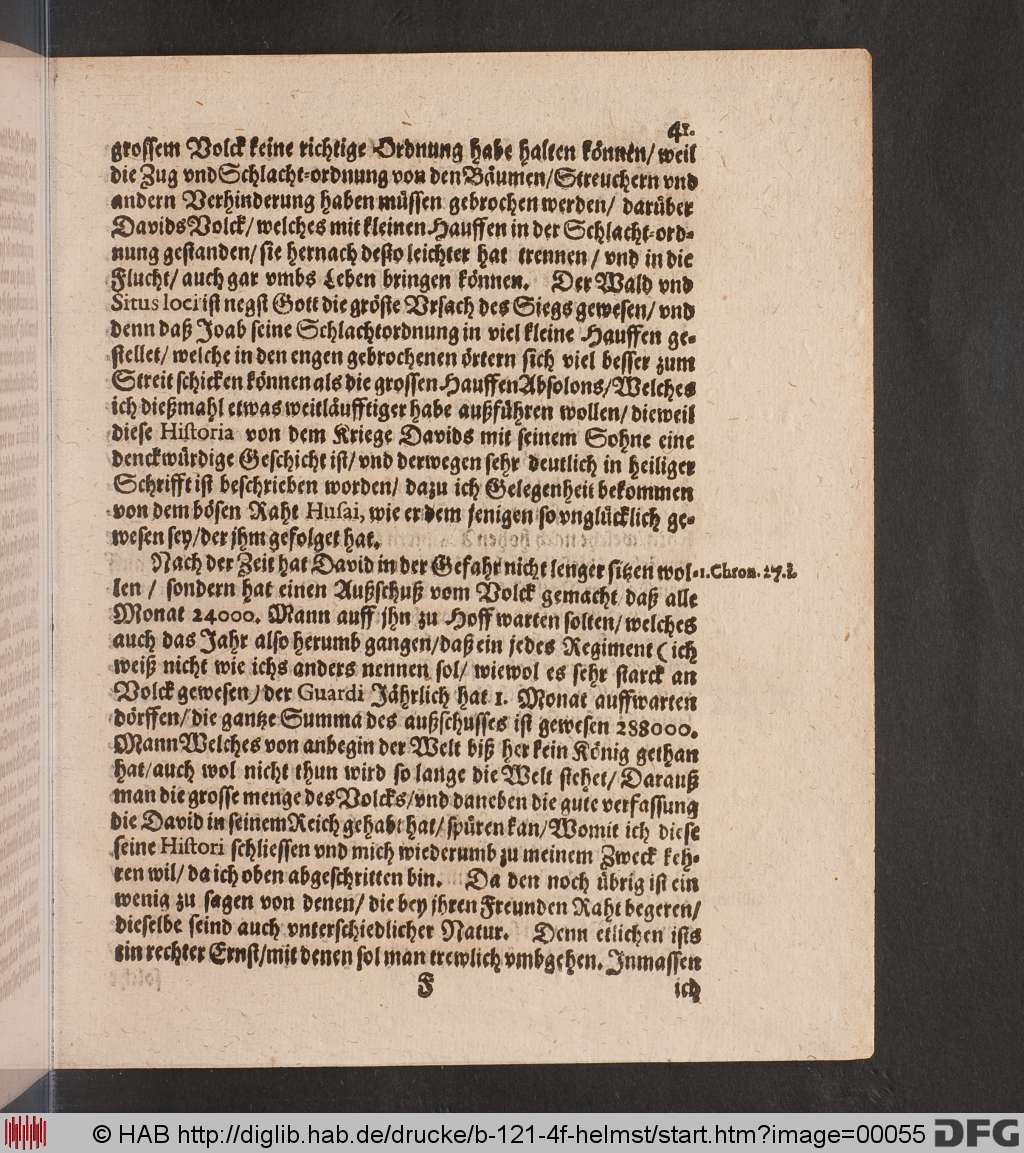 41.
grossem Volck keine richtige Ordnung habe halten können/ weil
die Zug vnd Schlacht-ordnung von den Bäumen/ Streuchern vnd
andern Verhinderung haben müssen gebrochen werden/ darüber
Davids Volck/ welches mit kleinen Hauffen in der Schlacht-ord-
nung gestanden/ sie hernach desto leichter hat trennen/ vnd in die
Flucht/ auch gar vmbs Leben bringen können. Der Wald vnd
Situs loci ist negst Gott die gröste Vrsach des Siegs gewesen/ vnd
denn daß Joab seine Schlachtordnung in viel kleine Hauffen ge-
stellet/ welche in den engen gebrochenen örtern sich viel besser zum
Streit schicken können als die grossen Hauffen Absolons/ Welches
ich dießmahl etwas weitläufftiger habe außführen wollen/ dieweil
diese Historia von dem Kriege Davids mit seinem Sohne eine
denckwürdige Geschicht ist/ vnd derwegen sehr deutlich in heiliger
Schrifft ist beschrieben worden/ dazu ich Gelegenheit bekommen
von dem bösen Raht Husai, wie er dem jenigen so vnglücklich ge-
wesen sey/ der jhm gefolget hat.
Nach der Zeit hat David in der Gefahr nicht lenger sitzen wol- 1. Chron. 27. 1.
len/ sondern hat einen Außschuß vom Volck gemacht daß alle
Monat 24000. Mann auff jhn zu Hoff warten solten/ welches
auch das Jahr also herumb gangen/ daß ein jedes Regiment (ich
weiß nicht wie ichs anders nennen sol/ wiewol es sehr starck an
Volck gewesen) der Guardi Jährlich hat 1. Monat auffwarten
dörffen/ die gantze Summa des außschusses ist gewesen 288000.
Mann Welches von anbegin der Welt biß her kein König gethan
hat/ auch wol nicht thun wird so lange die Welt stehet/ Darauß
man die grosse menge des Volcks/ vnd daneben die gute verfassung
die David in seinem Reich gehabt hat/ spüren kan/ Womit ich diese
seine Histori schliessen vnd mich wiederumb zu meinem Zweck keh-
ren wil/ da ich oben abgeschritten bin. Da den noch übrig ist ein
wenig zu sagen von denen/ die bey jhren Freunden Raht begeren/
dieselbe seind auch vnterschiedlicher Natur. Denn etlichen ists
ein rechter Ernst/ mit denen sol man trewlich vmbgehen. Inmassen
F ich
© HAB http://diglib.hab.de/drucke/b-121-4f-helmst/start.htm?image=00055 DFG